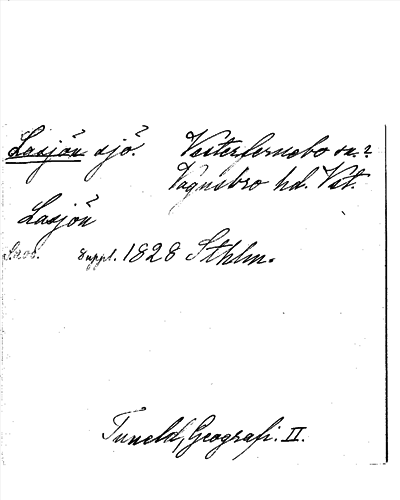 Lasjön sjö. Vesterfernebo sn.?
Vagnsbro hd. Vst.
Lasjön
Suppl. 1828 Sthlm.
Tuneld, Geografi. II.